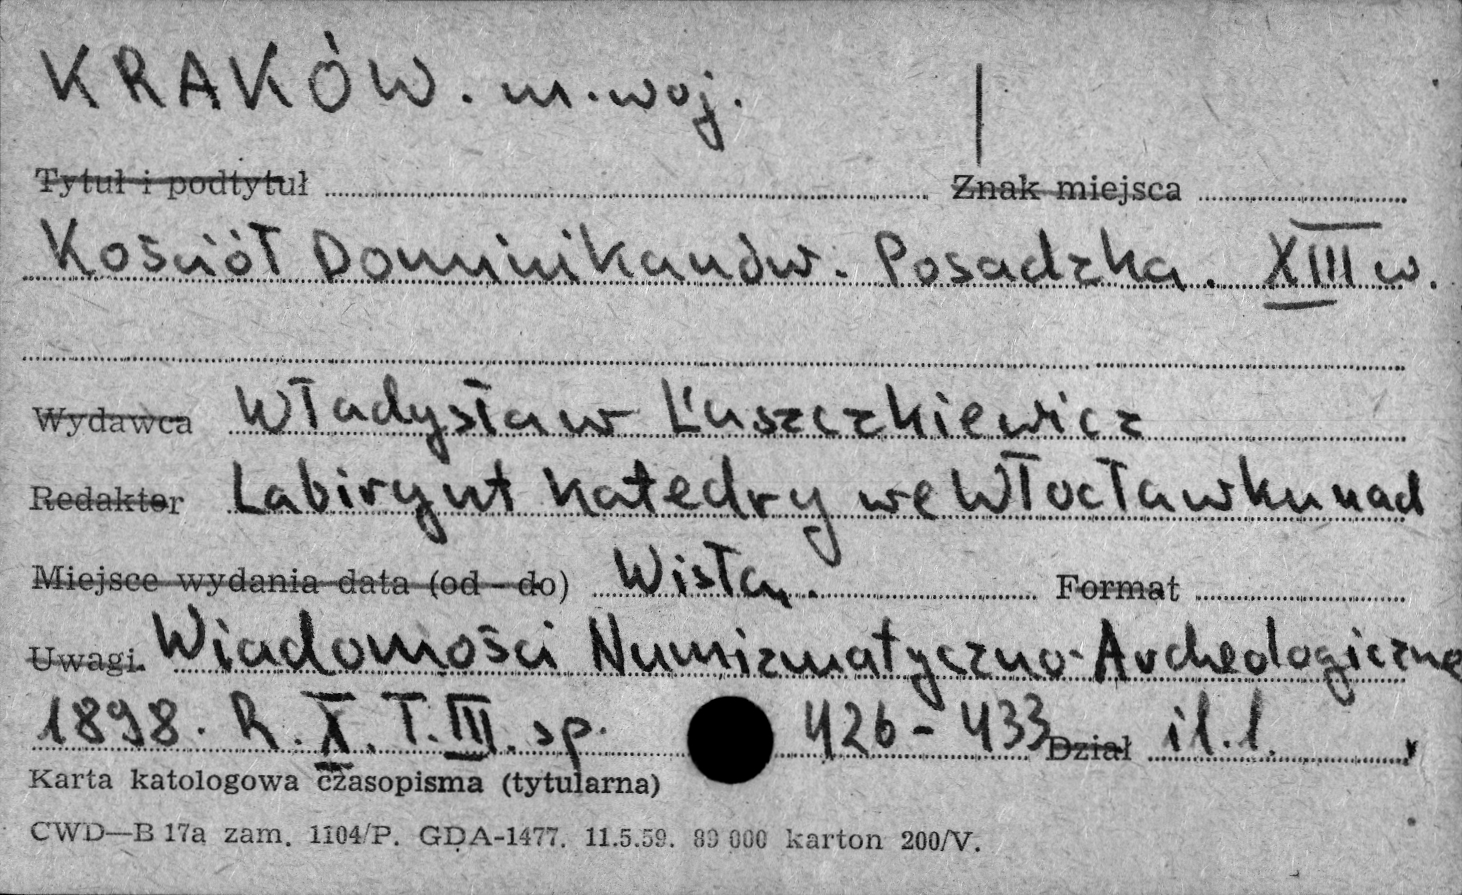 KRAKÓW. m. woj.
Tytuł i podtytuł Znak miejsca
Kościół Dominikanów. Posadzka. XIII w.
Wydawca Władysław Łuszczkiewicz
Redaktor Labirynt Katedry we Włocławku nad
Miejsce wydania data (od - do) Wisłą. Format
Uwagi. Wiadomości Numizmatyczno-Archeologiczne
1898. R. X. T. III. sp. 426-433 Dział il. 1.
Karta katologowa czasopisma (tytularna)
CWD—B 17a zam. 1104/P. GDA-1477. 11.5.59. 89 000 karton 200/V.